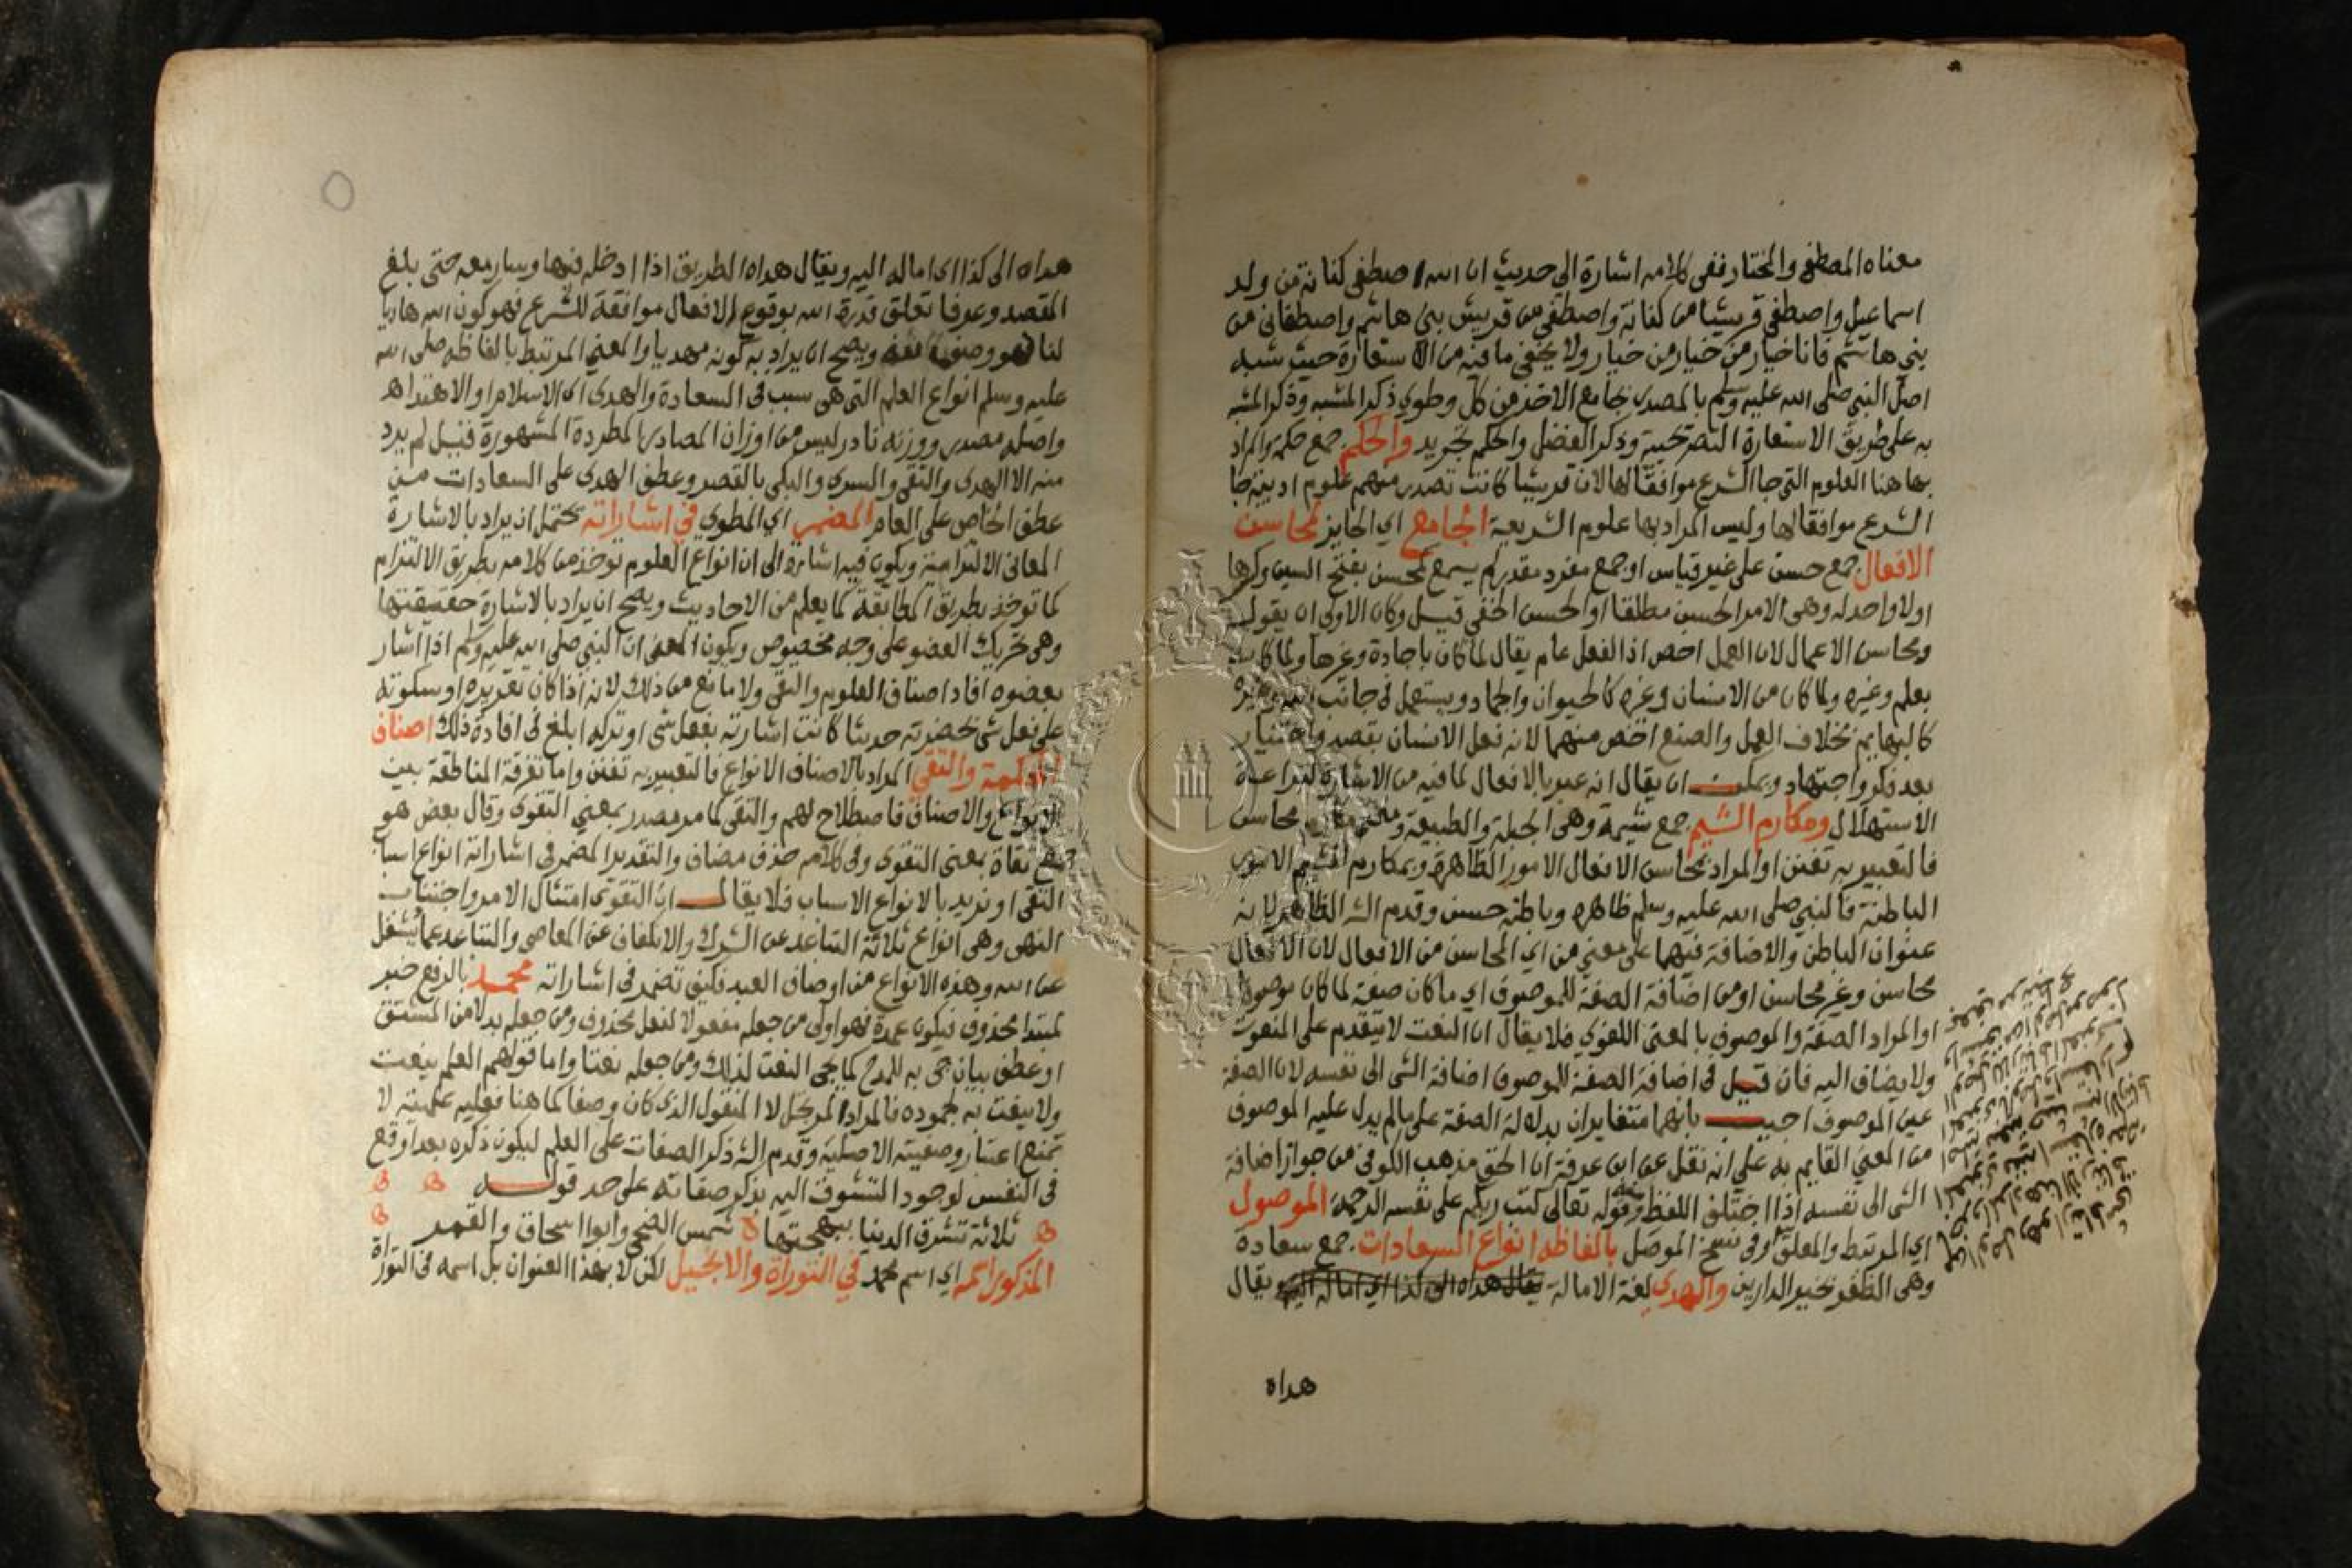 معناه المصطفى والمختار ففى كلامه اشارة الى حديث ان الله اصطفى كنانة من ولد
اسماعيل واصطفى قريشا من كنانة واصطفى من قريش بني هاشم واصطفاني من
بني هاشم فانا خيار من خيار من خيار ولا يخفى ما فيه من الاستعارة حيث شبه
اصل النبي صلى الله عليه وسلم بالمصدر بجامع الاخذ من كل وطوي ذكر المشبه وذكر المشبه
به على طريق الاستعارة التصريحية وذكر الفضل والحكم تجريد والحكم جمع حكمة والمراد
بها هنا العلوم التى جا الشرع موافقا لها لان قريشا كانت تصدر منهم علوم ادبية جا
الشرع موافقا لها وليس المراد بها علوم الشريعة الجامع اي الحايز لمحاسن
الافعال جمع حسن على غير قياس او جمع مفرد مقدر لم يسمع لمحسن بفتح السين وكسرها
اولا واحد له وهى الامر الحسن مطلقا او الحسن الخفى قيل وكان الاولى ان يقول
ومحاسن الاعمال لان العمل اخص اذ الفعل عام يقال لما كان باجادة وغيرها ولما كان
بعلم وغيره ولما كان من الانسان وغيره كالحيوان والجماد ويستعمل فى جانب الله وغيره
كالبهايم بخلاف العمل والصنع اخص منهما لانه فعل الانسان بقصد واختيار
بعد فكر واجتهاد ويمكن ان يقال انه عبر بالافعال لما فيه من الاشارة لبراعة
الاستهلال ومكارم الشيم جمع شيمة وهى الجبلة والطبيعة محاسن
فالتعبير به تفنن او المراد بمحاسن الافعال الامور الظاهرة وبمكارم الشيم الامور
الباطنة فالنبي صلى الله عليه وسلم ظاهره وباطنه حسن وقدم الظاهر لانه
عنوان الباطن والاضافة فيهما على معنى من اي المحاسن من الافعال لان الافعال
محاسن وغير محاسن او من اضافة الصفة للموصوف اي ما كان صفة لما كان موصوفا
او المراد الصفة والموصوف بالمعنى اللغوي فلا يقال ان النعت لا يتقدم على المنعوت
ولا يضاف اليه فان قيل فى اضافة الصفة للموصوف اضافة الشى الى نفسه لان الصفة
عين الموصوف اجيب بانهما متغايران بدلالة الصفة على ما لم يدل عليه الموصوف
من المعنى القايم به على انه نقل عن ابن عرفة ان الحق مذهب الكوفى من جواز اضافة
الشى الى نفسه اذا اختلف اللفظ وقوله تعالى كتب ربكم على نفسه الرحمة الموصول
اي المرتبط والمعلق وفى نسخ الموصل بالفاظه انواع السعادات جمع سعادة
وهى الظفر بخير الدارين والهدى لغة الامالة يقال هداه الى كذا اي اماله اليه يقال
هداه
هداه الى كذا اى اماله اليه ويقال هداه الطريق اذا ادخله فيها وسار معه حتى بلغ
المقصد وعرفا تعلق قدرة الله بوقوع الافعال موافقة للشرع فهو كون الله هاديا
لنا فهو وصف ويصح ان يراد به كونه مهديا والمعنى المرتبط بالفاظه صلى الله
عليه وسلم انواع العلم التى هى سبب فى السعادة والهدى اى الاسلام او الاهتدا هد
واصله مصدر ووزنه نادر ليس من اوزان المصادر المطردة المشهورة قيل لم يرد
منه الا الهدى والتقى والسرى والبكى بالقصر وعطف الهدى على السعادات من
عطف الخاص على العام المضمر اي المطوي في اشاراته يحتمل ان يراد بالاشارة
المعانى الالتزامية ويكون فيه اشارة الى ان انواع العلوم توخذ من كلامه بطريق الالتزام
كما توخذ بطريق المطابقة كما يعلم من الاحاديث ويصح ان يراد بالاشارة حقيقتها
وهى تحريك العضو على وجه مخصوص ويكون المعنى ان النبى صلى الله عليه وسلم اذا اشار
بعضوه افاد اصناف العلوم والتقى ولا مانع من ذلك لانه اذا كان تقريره او سكوته
على فعل شى بحضرته حديثا كانت اشارته بفعل شى او تركه ابلغ فى افادة ذلك اصناف
الحكمة والتقى المراد بالاصناف الانواع فالتعبير به تفنن واما تفرقة المناطقة بين
الانواع والاصناف فاصطلاح لهم والتقى كما مر مصدر بمعنى التقوى وقال بعض هو
جمع تقاة بمعنى التقوى وفى كلامه حذف مضاف والتقدير المضمر فى اشاراته انواع اسباب
التقى او نريد بالانواع الاسباب فلا يقال ان التقوى امتثال الامر واجتناب
النهى وهى انواع ثلاثة التباعد عن الشرك والانكفاف عن المعاصى والتباعد عما يشغل
عن الله وهذه الانواع من اوصاف العبد فكيف تضمر فى اشاراته محمد بالرفع خبر
لمبتدا محذوف فيكون عمدة فهو اولى من جعله مفعولا لفعل محذوف ومن جعله بدلا من المشتق
او عطف بيان جى به للمدح كما يجى النعت لذلك ومن جعله نعتا واما قولهم العلم ينعت
ولا ينعت به لجموده فالمراد المرتجل لا المنقول الذى كان وصفا كما هنا فعلميته لا
تمنع اعتبار وصفيته الاصلية وقدم ذكر الصفات على العلم ليكون ذكره بعد اوقع
فى النفس لوجود التشوف اليه بذكر صفاته على حد قوله
ثلاثة تشرق الدنيا ببهجتها شمس الضحى وابوا اسحاق والقمر
المذكور اسمه اي اسم محمد في التوراة والانجيل لكن لا بهذا العنوان بل اسمه فى التوراة